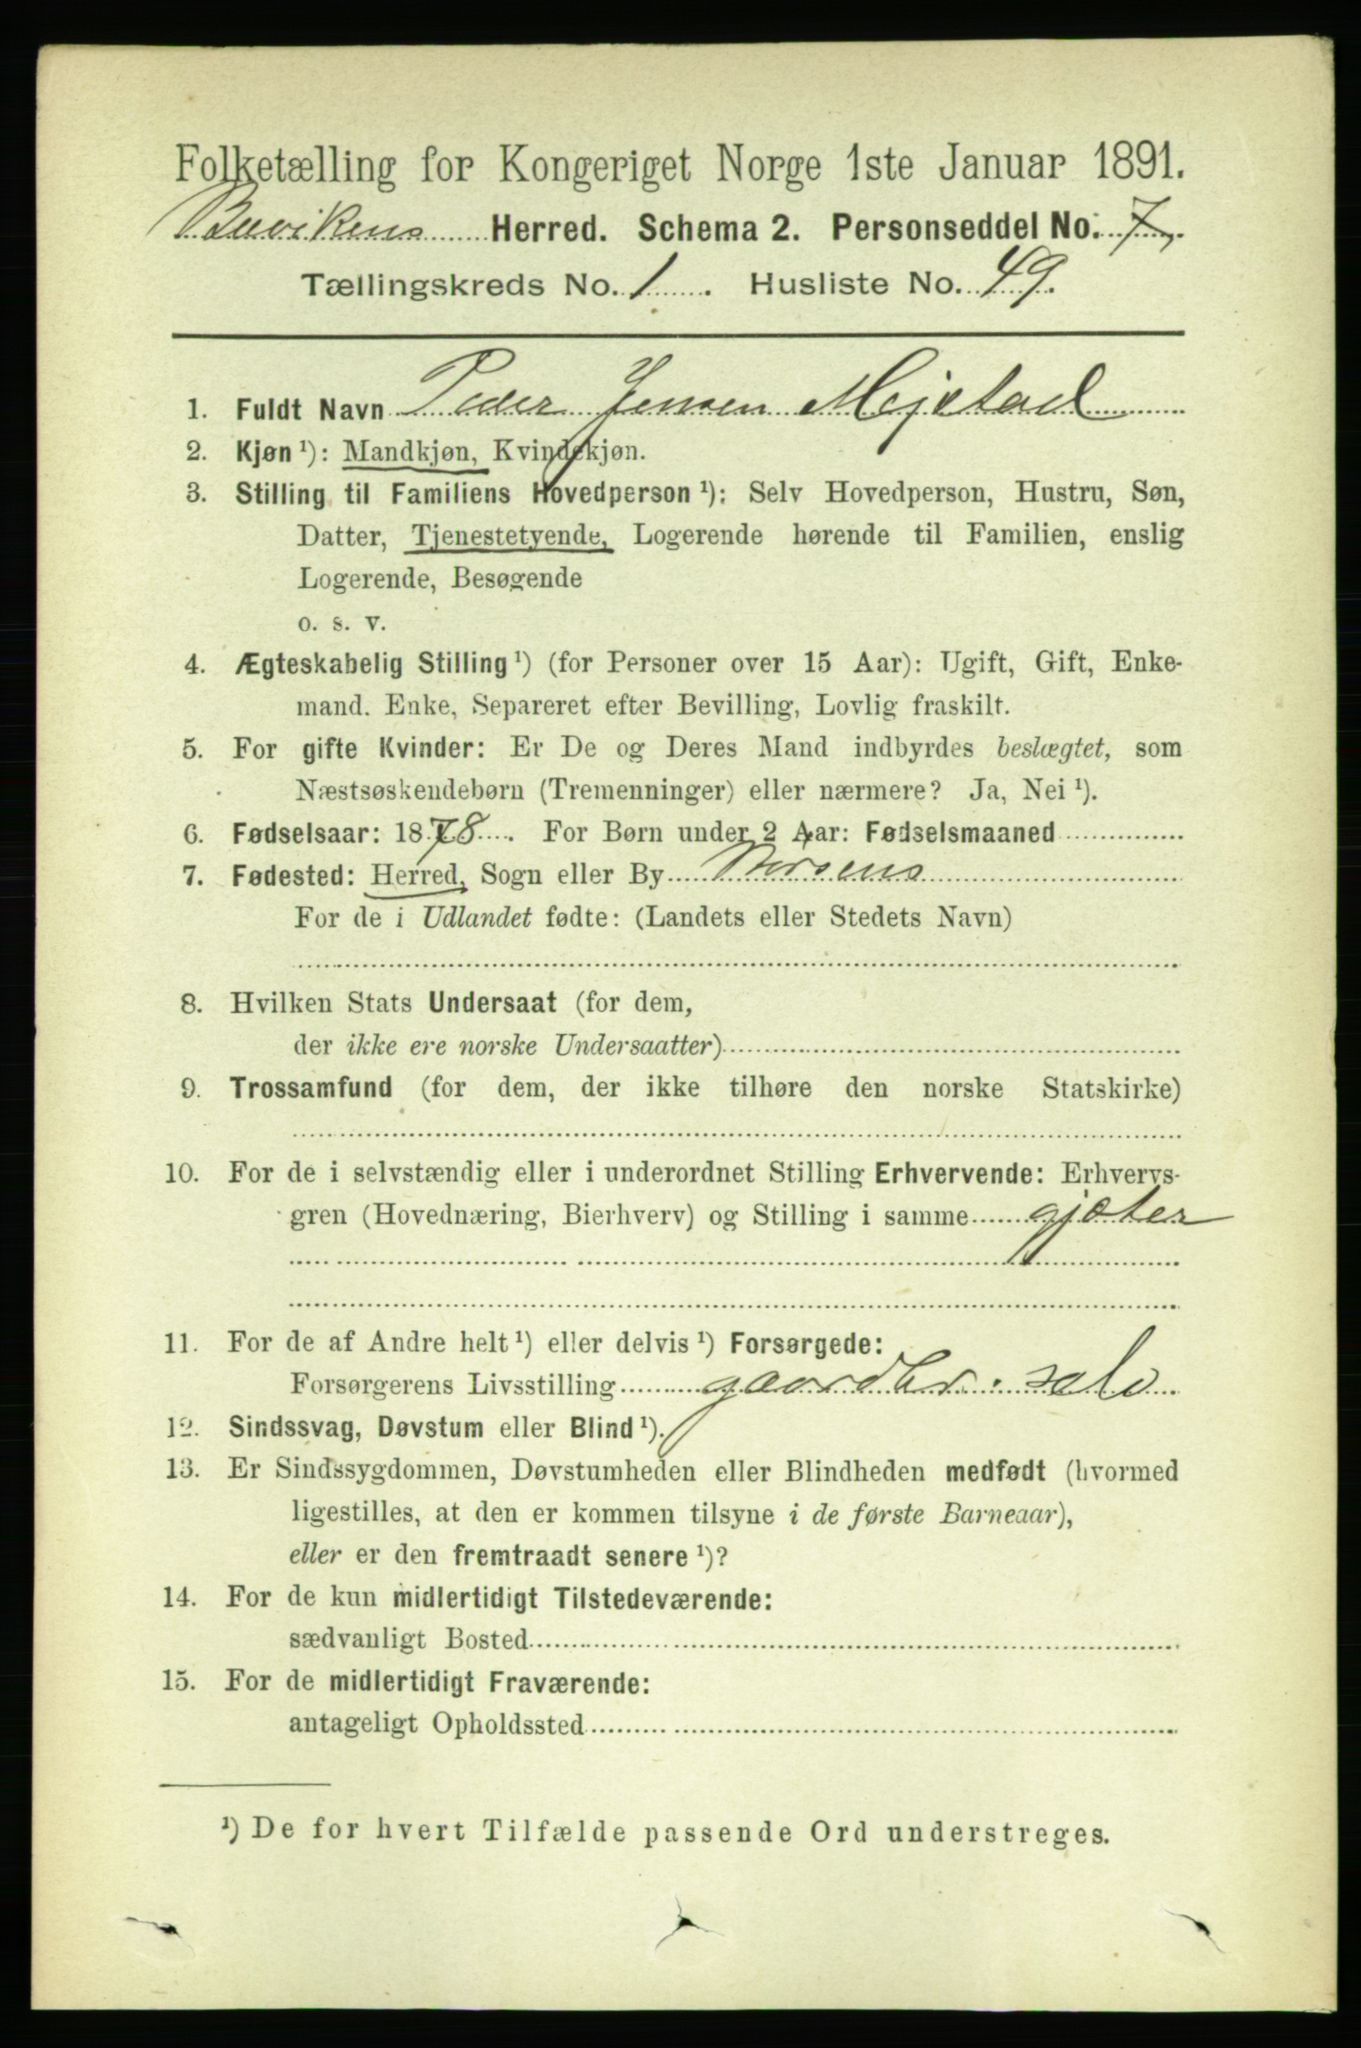 Folketælling for Kongeriget Norge 1ste Januar 1891.
Buvikens Herred. Schema 2. Personseddel No. 7
Tællingskreds No. 1. Husliste No. 49.
1. Fuldt Navn Peder Jensen Mejstad
2. Kjøn ¹): Mandkjøn, Kvindekjøn.
3. Stilling til Familiens Hovedperson ¹): Selv Hovedperson, Hustru, Søn,
Datter, Tjenestetyende, Logerende hørende til Familien, enslig
Logerende, Besøgende
o. s. v.
4. Ægteskabelig Stilling ¹) (for Personer over 15 Aar): Ugift, Gift, Enke-
mand. Enke, Separeret efter Bevilling, Lovlig fraskilt.
5. For gifte Kvinder: Er De og Deres Mand indbyrdes beslægtet, som
Næstsøskendebørn (Tremenninger) eller nærmere? Ja, Nei ¹).
6. Fødselsaar: 1878. For Børn under 2 Aar: Fødselsmaaned
7. Fødested: Herred, Sogn eller By Børsens
For de i Udlandet fødte: (Landets eller Stedets Navn)
8. Hvilken Stats Undersaat (for dem,
der ikke ere norske Undersaatter)
9. Trossamfund (for dem, der ikke tilhøre den norske Statskirke)
10. For de i selvstændig eller i underordnet Stilling Erhvervende: Erhvervs-
gren (Hovednæring, Bierhverv) og Stilling i samme gjæter
11. For de af Andre helt ¹) eller delvis ¹) Forsørgede:
Forsørgerens Livsstilling gaardbr. selv
12. Sindssvag, Døvstum eller Blind ¹).
13. Er Sindssygdommen, Døvstumheden eller Blindheden medfødt (hvormed
ligestilles, at den er kommen tilsyne i de første Barneaar),
eller er den fremtraadt senere ¹)?
14. For de kun midlertidigt Tilstedeværende:
sædvanligt Bosted
15. For de midlertidigt Fraværende:
antageligt Opholdssted
¹) De for hvert Tilfælde passende Ord understreges.